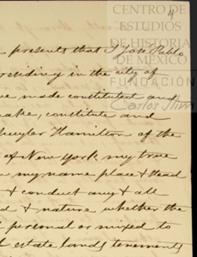 CENTRO DE
ESTUDIOS
DE HISTORIA
DE MEXICO
FUNDACIÓN
Carlos Slim
presents that I José Pablo
residing in the city of
made constituted and
make, constitute and
Schuyler Hamilton of the
of New York my true
my name place & stead
& conduct any & all
& nature whether the
personal or mixed to
estate lands tenements